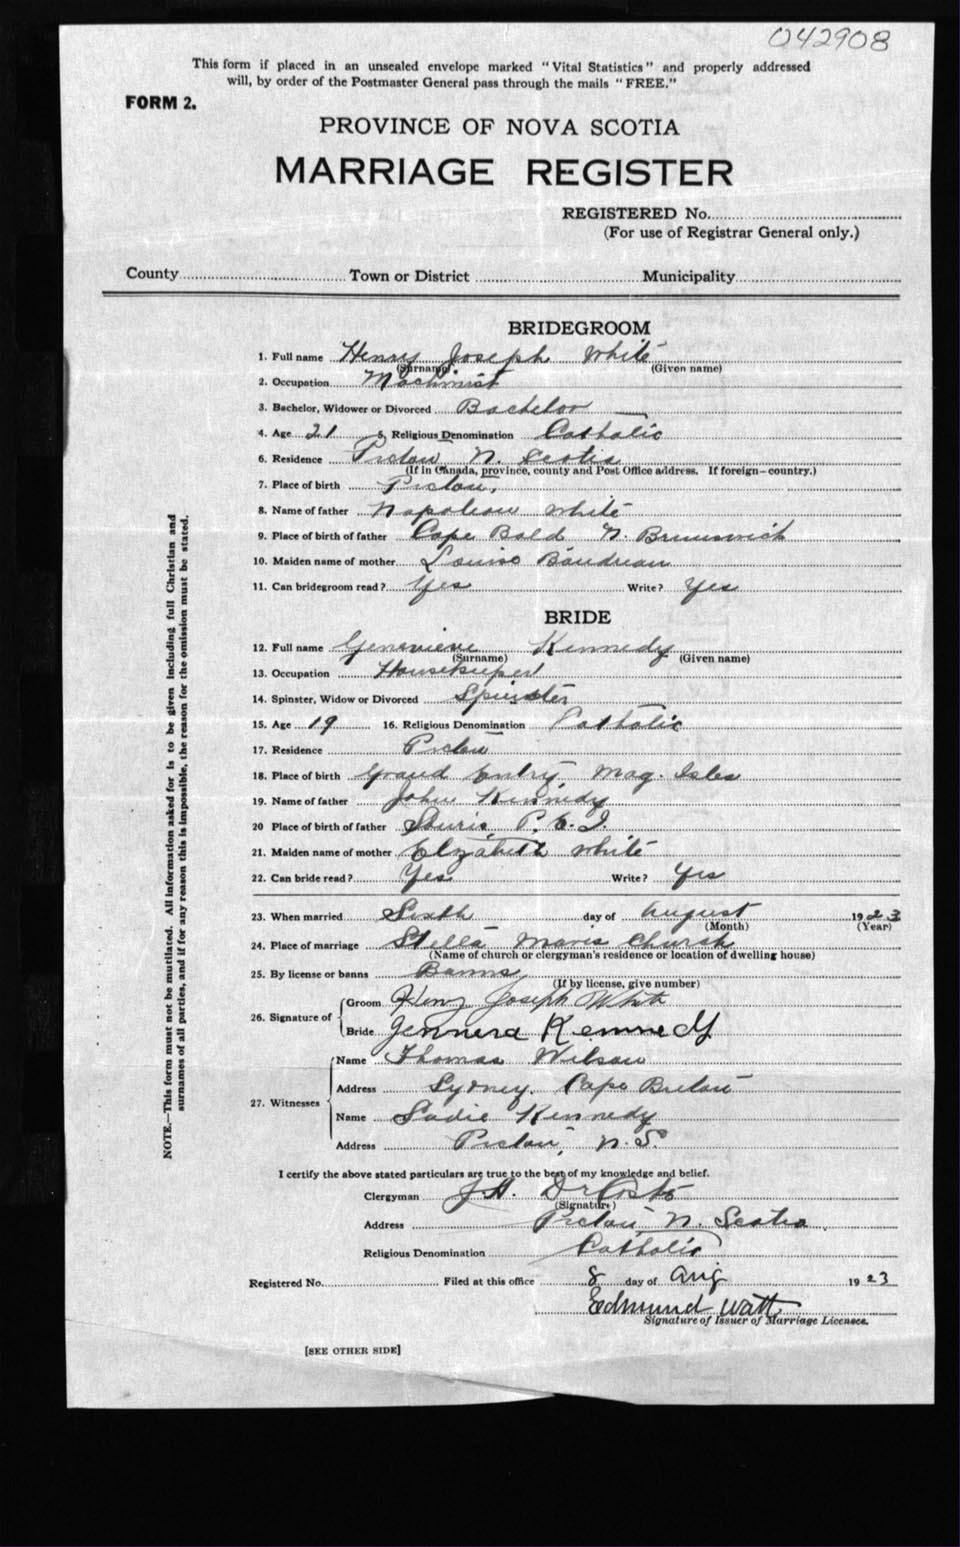 042908
This form if placed in an unsealed envelope marked "Vital Statistics" and properly addressed
will, by order of the Postmaster General pass through the mails "FREE."
FORM 2.
PROVINCE OF NOVA SCOTIA
MARRIAGE REGISTER
REGISTERED No.
(For use of Registrar General only.)
County Town or District Municipality
BRIDEGROOM
1. Full name Henry Joseph White
(Surname) (Given name)
2. Occupation Machinist
3. Bachelor, Widower or Divorced Bachelor
4. Age 21 5. Religious Denomination Catholic
6. Residence Pictou N. Scotia
(If in Canada, province, county and Post Office address. If foreign—country.)
7. Place of birth Pictou,
8. Name of father Napoleon White
9. Place of birth of father Cape Bald N. Brunswick
10. Maiden name of mother Louise Boudreau
11. Can bridegroom read? Yes Write? Yes
BRIDE
12. Full name Genevieve Kennedy
(Surname) (Given name)
13. Occupation Housekeeper
14. Spinster, Widow or Divorced Spinster
15. Age 19 16. Religious Denomination Catholic
17. Residence Pictou
18. Place of birth Grand Entry, Mag. Isles
19. Name of father John Kennedy
20 Place of birth of father Souris, P. E. I.
21. Maiden name of mother Elzabeth White
22. Can bride read? Yes Write? Yes
23. When married Sixth day of August 1923
(Month) (Year)
24. Place of marriage Stella Maris Church
(Name of church or clergyman's residence or location of dwelling house)
25. By license or banns Banns
(If by license, give number)
26. Signature of
Groom Henry Joseph White
Bride Jennera Kennedy
27. Witnesses
Name Thomas Wilson
Address Sydney, Cape Breton
Name Sadie Kennedy
Address Pictou, N.S.
I certify the above stated particulars are true to the best of my knowledge and belief.
Clergyman J H.
(Signature)
Address Pictou N. Scotia.
Religious Denomination Catholic
Registered No. Filed at this office 8 day of Aug 1923
Edmund Watt
Signature of Issuer of Marriage Licenses.
[SEE OTHER SIDE]
NOTE.—This form must not be mutilated. All information asked for is to be given including full Christian and
surnames of all parties, and if for any reason this is impossible, the reason for the omission must be stated.